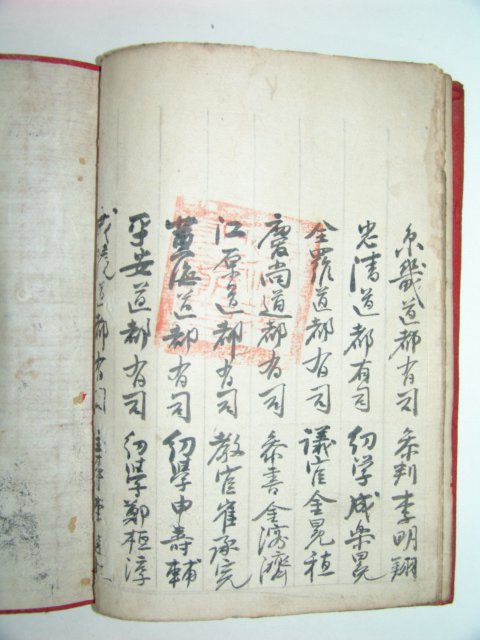 京畿道都有司 參判 李明翔
忠淸道都有司 幼學 成樂
全羅道都有司 議官 金冕植
慶尙道都有司 參書 金濟
江原道都有司 敎官 崔
黃海道都有司 幼學 申壽輔
平安道都有司 幼學 鄭桓淳
道都有司